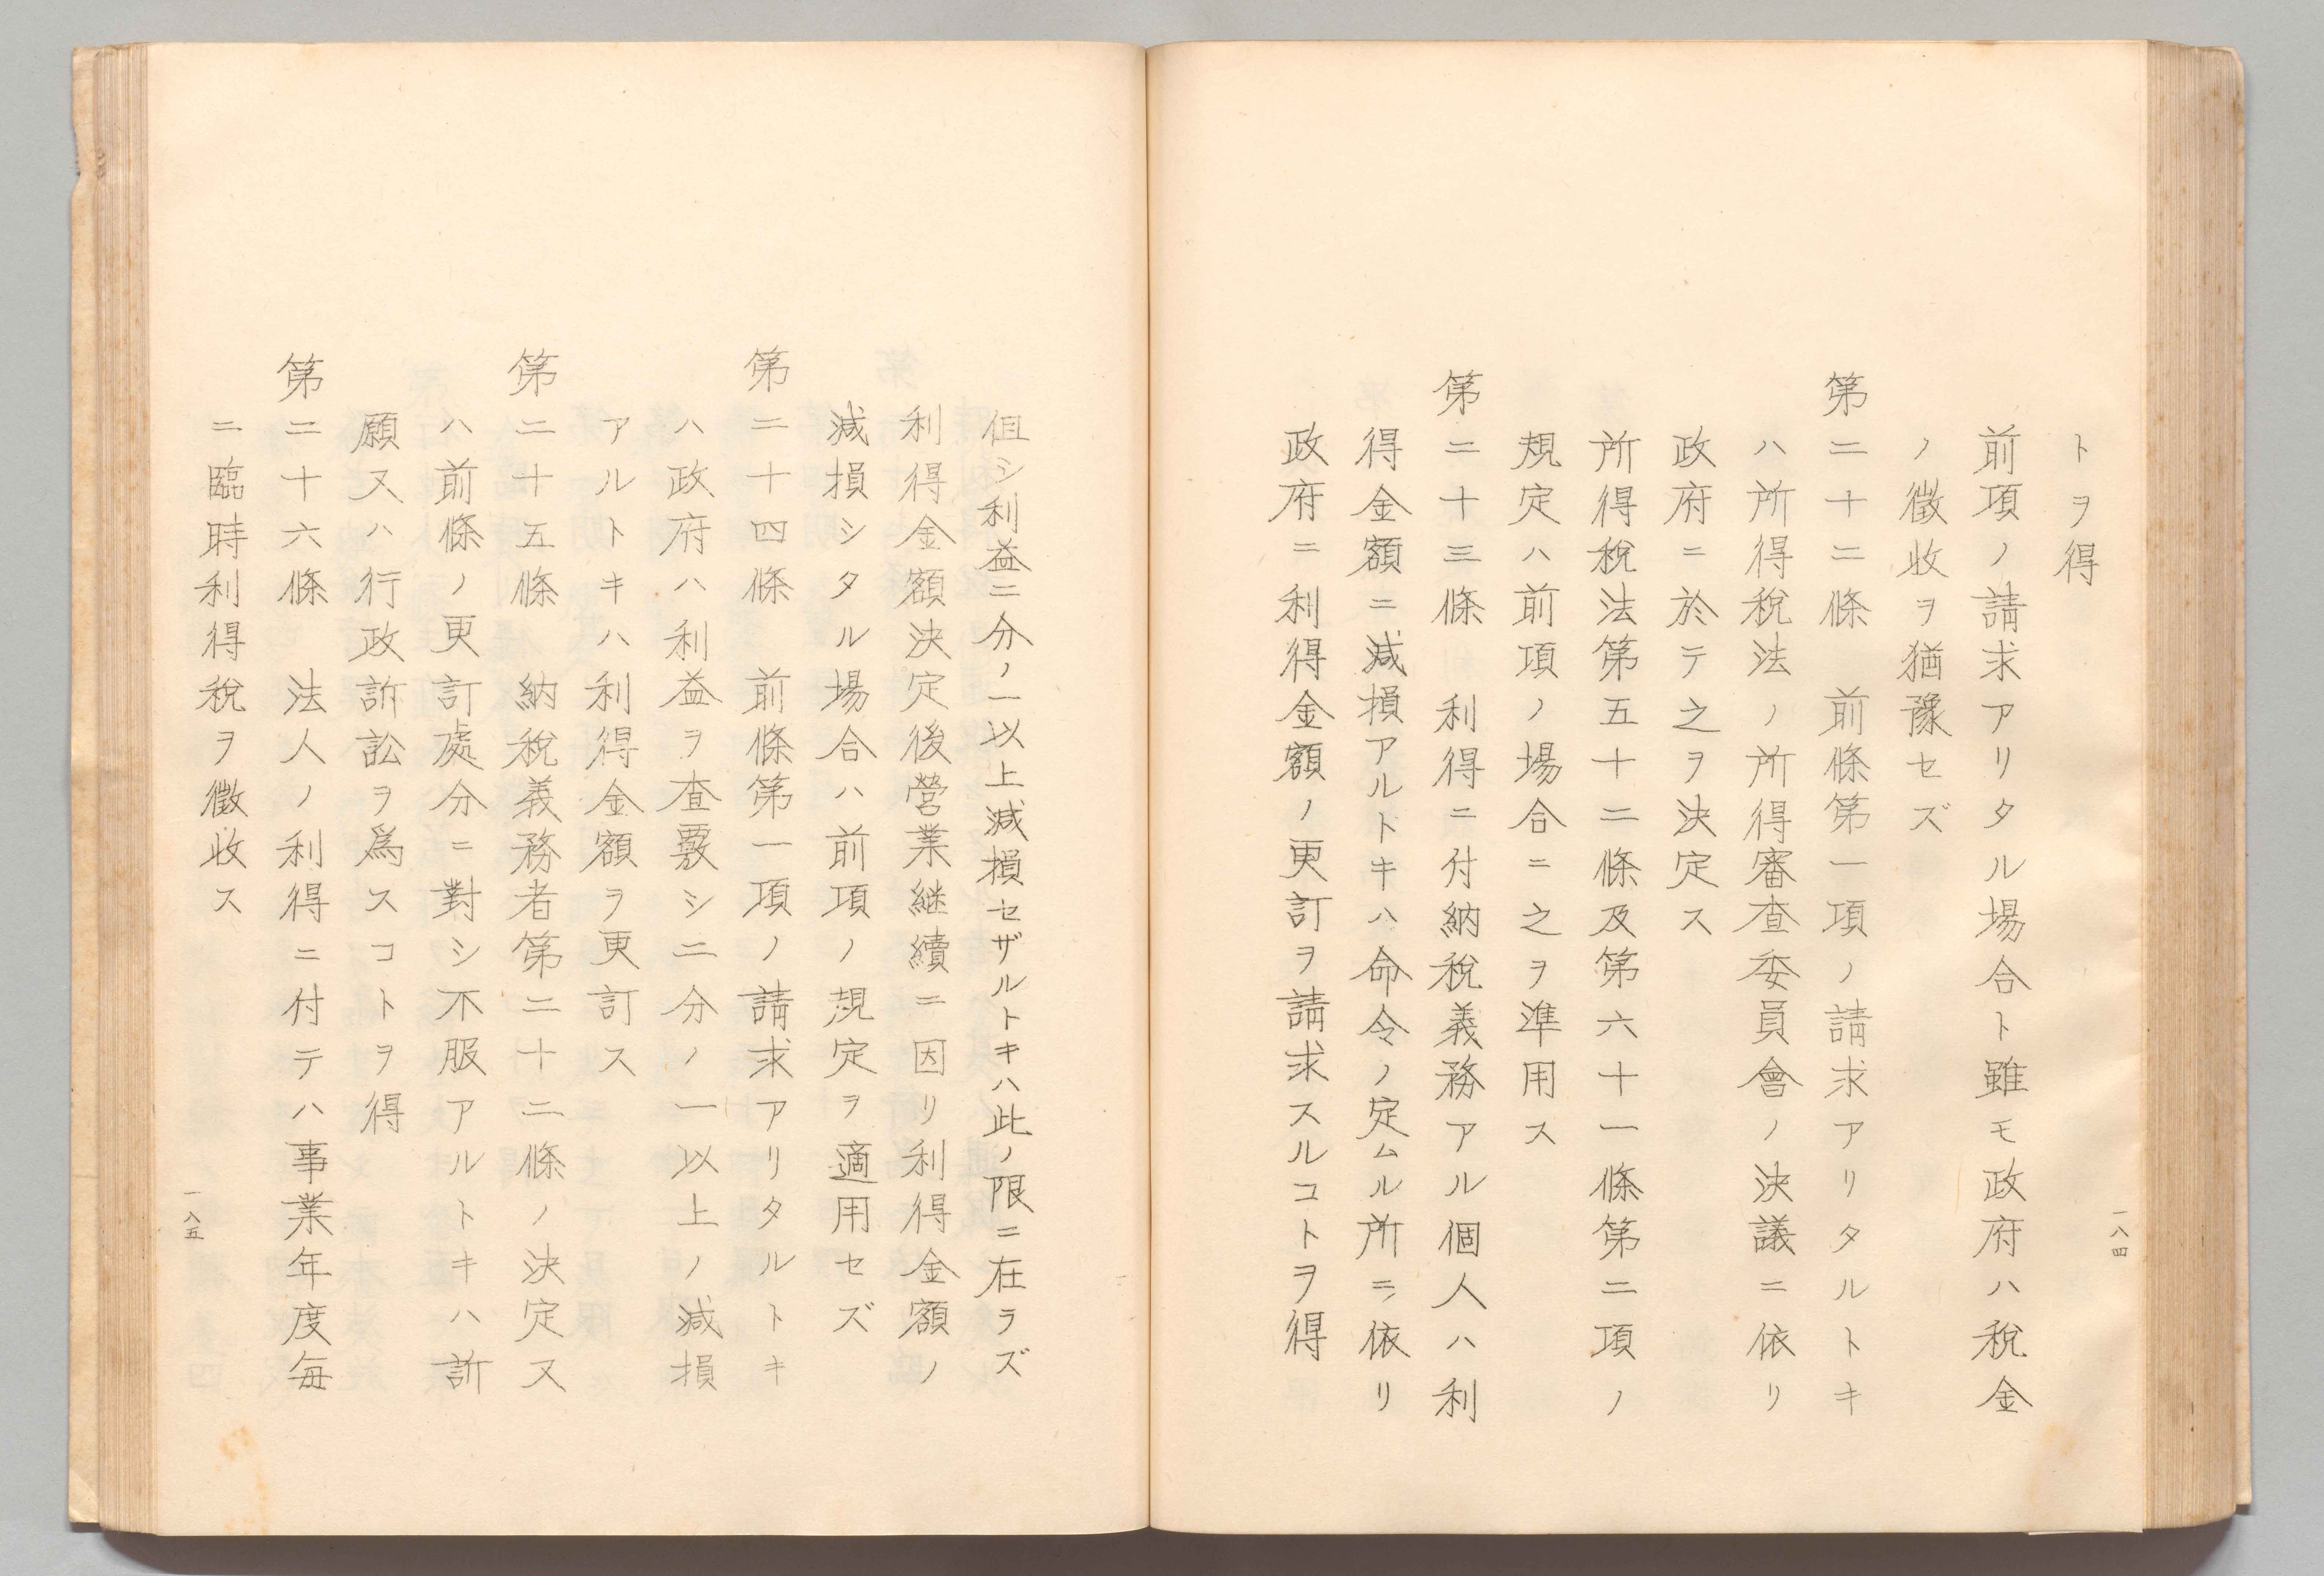 トヲ得
前項ノ請求アリタル場合ト雖モ政府ハ稅金
ノ徵收ヲ猶豫セズ
第二十二條　前條第一項ノ請求アリタルトキ
ハ所得稅法ノ所得審査委員會ノ決議ニ依リ
政府ニ於テ之ヲ決定ス
所得稅法第五十二條及第六十一條第二項ノ
規定ハ前項ノ場合ニ之ヲ準用ス
第二十三條　利得ニ付納稅義務アル個人ハ利
得金額ニ減損アルトキハ命令ノ定ムル所ニ依リ
政府ニ利得金額ノ更訂ヲ請求スルコトヲ得
一八四
但シ利益二分ノ一以上減損セザルトキハ此ノ限ニ在ラズ
利得金額決定後營業継續ニ因リ利得金額ノ
減損シタル場合ハ前項ノ規定ヲ適用セズ
第二十四條　前條第一項ノ請求アリタルトキ
ハ政府ハ利益ヲ査覈シ二分ノ一以上ノ減損
アルトキハ利得金額ヲ更訂ス
第二十五條　納稅義務者第二十二條ノ決定又
ハ前條ノ更訂處分ニ對シ不服アルトキハ訴
願又ハ行政訴訟ヲ爲スコトヲ得
第二十六條　法人ノ利得ニ付テハ事業年度每
ニ臨時利得稅ヲ徵收ス
一八五